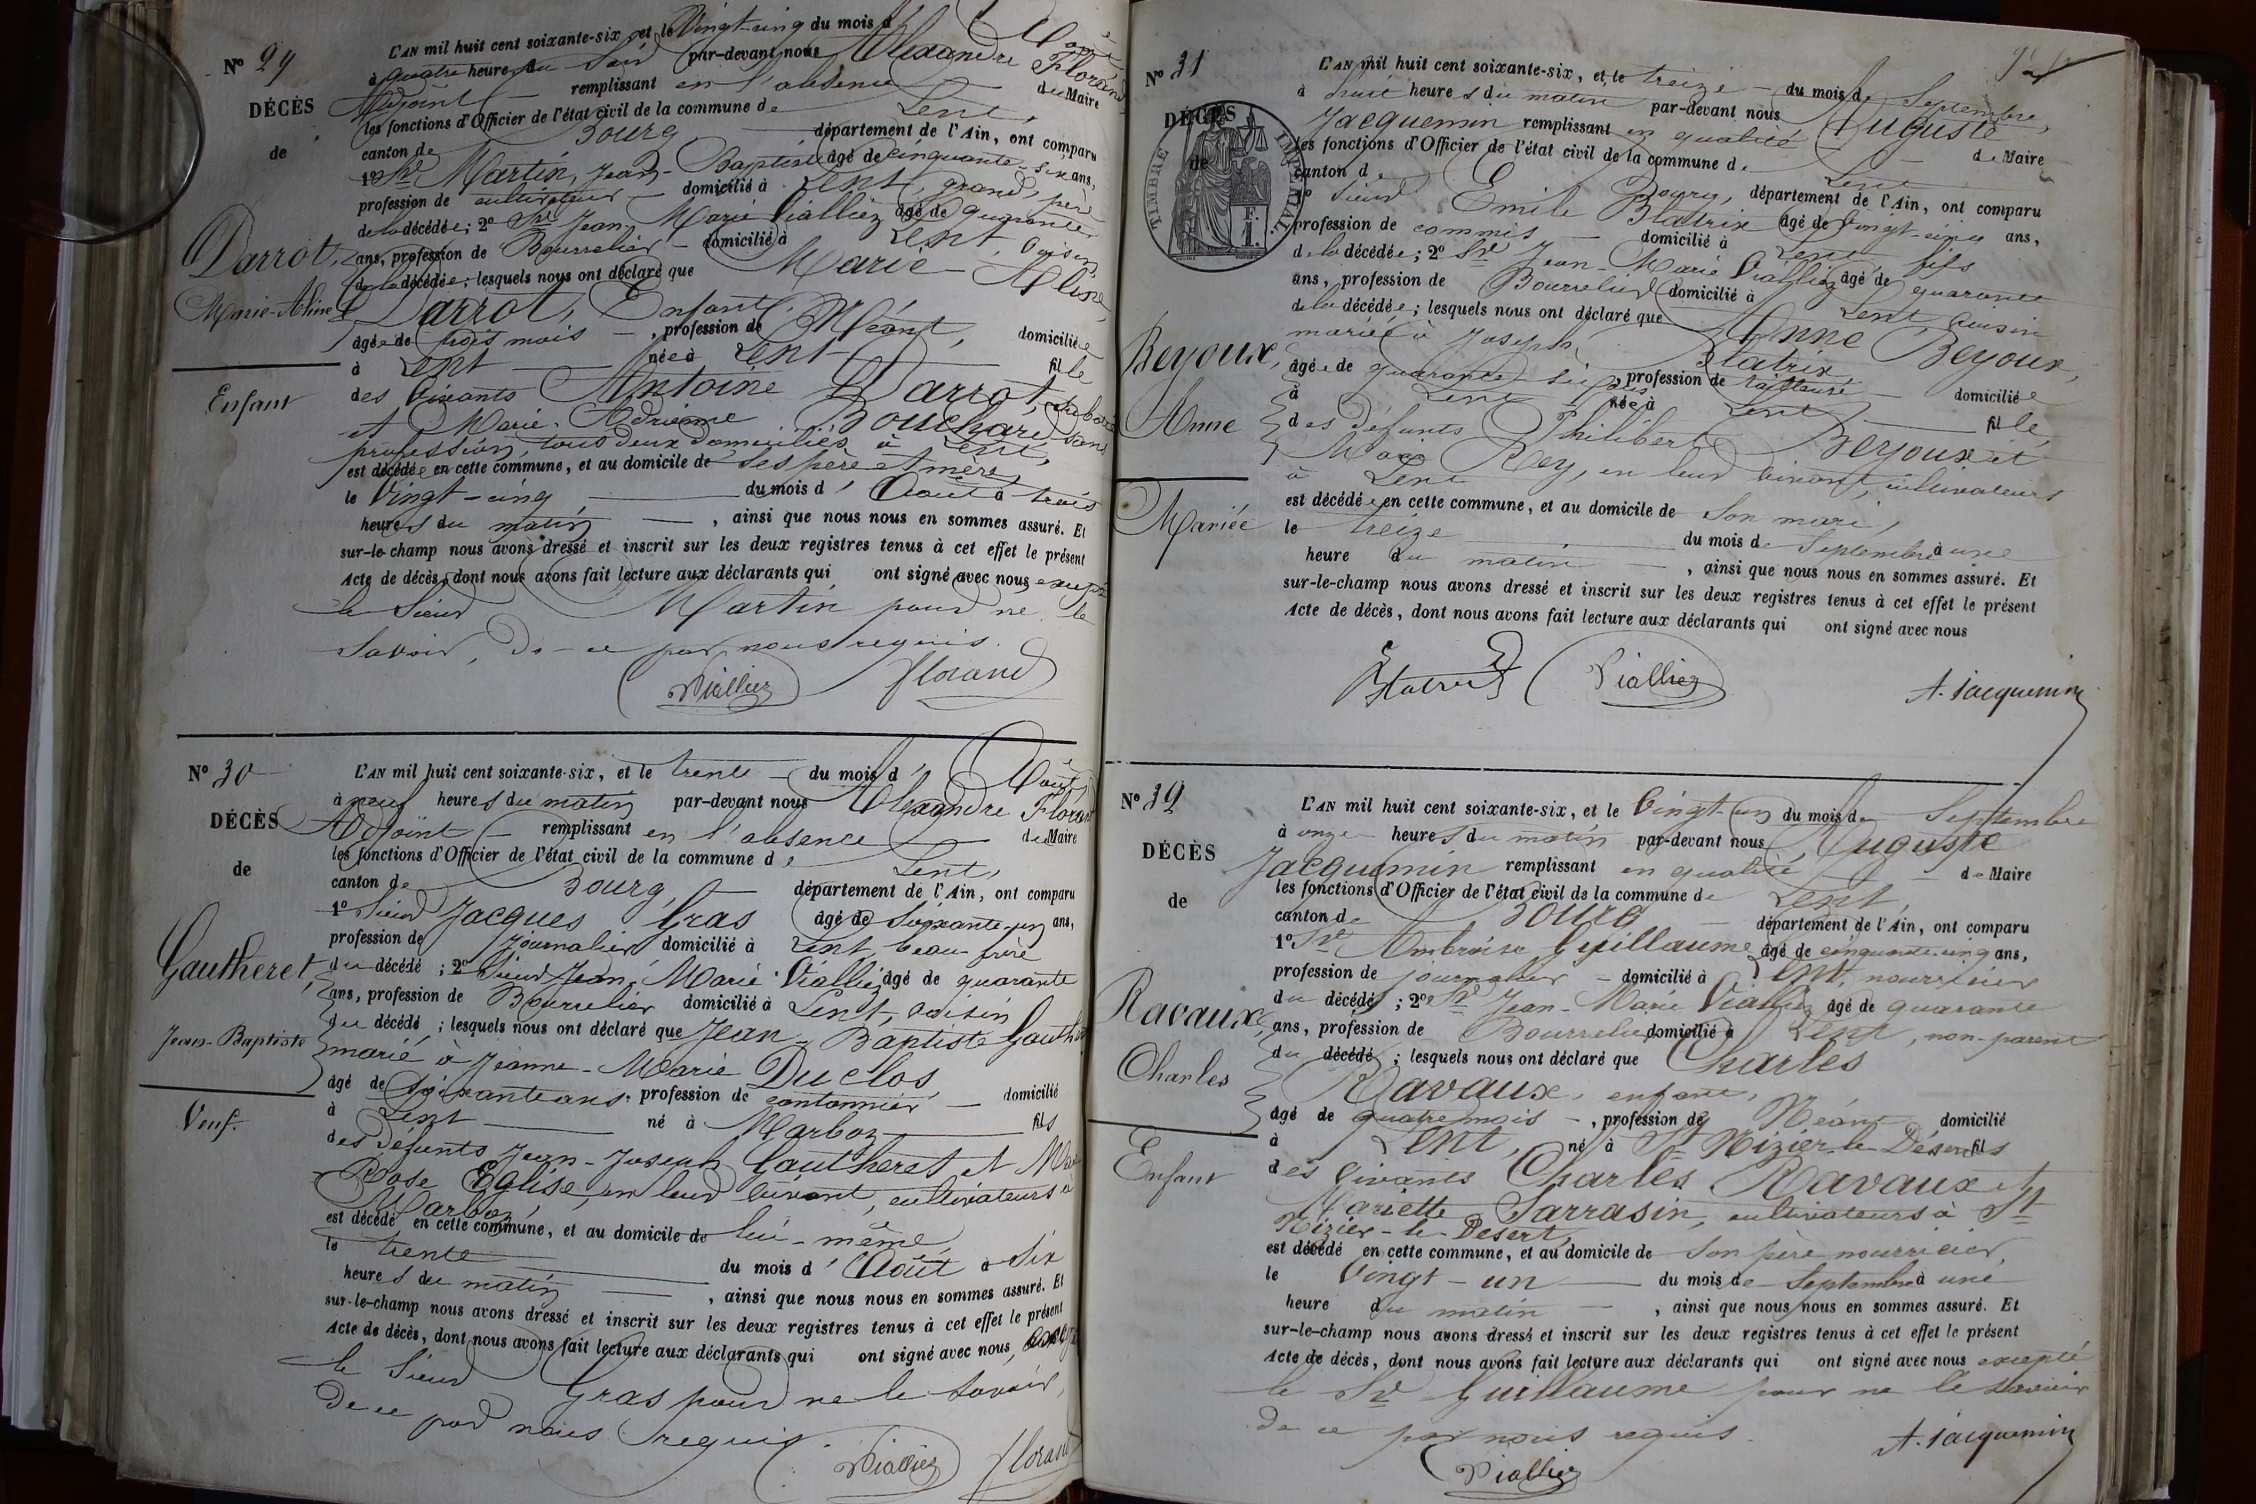 N° 29
DÉCÈS
de
Darrot,
Marie-Aline
Enfant
L'AN mil huit cent soixante-six, et le Vingt-cinq du mois d'Août
à quatre heures du Soir par-devant nous Alexandre Florand
Adjoint remplissant en l'absence du Maire
les fonctions d'Officier de l'état civil de la commune de Lent,
canton de Bourg département de l'Ain, ont comparu
1° Sr Martin, Jean-Baptiste âgé de cinquante-six ans,
profession de cultivateur domicilié à Lent, grand-père
de la décédée; 2° Sr Jean-Marie Vialliez âgé de quarante
ans, profession de Bourrelier domicilié à Lent, voisin
de la décédée; lesquels nous ont déclaré que Marie-Aline
Darrot, Enfant,
âgée de trois mois, profession de Néant, domiciliée
à Lent née à Lent fille
des vivants Antoine Darrot,
et Marie Adrienne Bouchard sans
profession, tous deux domiciliés à Lent,
est décédée en cette commune, et au domicile de ses père et mère
le Vingt-cinq du mois d'Août à trois
heures du matin, ainsi que nous nous en sommes assuré. Et
sur-le-champ nous avons dressé et inscrit sur les deux registres tenus à cet effet le présent
Acte de décès, dont nous avons fait lecture aux déclarants qui ont signé avec nous excepté
le Sieur Martin pour ne le
savoir, de ce par nous requis.
Vialliez Florand
N° 30
DÉCÈS
de
Gautheret,
Jean-Baptiste
Veuf.
L'AN mil huit cent soixante-six, et le trente du mois d'Août
à neuf heures du matin par-devant nous Alexandre Florand
Adjoint remplissant en l'absence du Maire
les fonctions d'Officier de l'état civil de la commune de Lent,
canton de Bourg, département de l'Ain, ont comparu
1° Sieur Jacques Gras âgé de Soixante-un ans,
profession de Journalier domicilié à Lent, beau-frère
du décédé; 2° Sieur Jean-Marie Vialliez âgé de quarante
ans, profession de Bourrelier domicilié à Lent, voisin
du décédé; lesquels nous ont déclaré que Jean-Baptiste Gauth
marié à Jeanne-Marie Duclos
âgé de soixante ans, profession de cantonnier domicilié
à Lent né à Marboz fils
des défunts Jean-Joseph Gautheret et
Rose Eglise, en leur vivant, cultivateurs à
Marboz,
est décédé en cette commune, et au domicile de lui-même
le trente du mois d'Août à six
heures du matin, ainsi que nous nous en sommes assuré. Et
sur-le-champ nous avons dressé et inscrit sur les deux registres tenus à cet effet le présent
Acte de décès, dont nous avons fait lecture aux déclarants qui ont signé avec nous,
le Sieur Gras pour ne le savoir,
de ce par nous requis.
Vialliez Florand
N° 31
DÉCÈS
de
TIMBRE IMPÉRIAL
Beyoux,
Anne
Mariée
L'AN mil huit cent soixante-six, et le treize du mois de Septembre,
à huit heures du matin par-devant nous Auguste
Jacquemin remplissant en qualité de Maire
les fonctions d'Officier de l'état civil de la commune de Lent
canton de Bourg, département de l'Ain, ont comparu
1° Sieur Emile Blatrix âgé de vingt-cinq ans,
profession de commis domicilié à Lent fils
de la décédée; 2° Sr Jean-Marie Vialliez âgé de quarante
ans, profession de Bourrelier domicilié à Lent, voisin
de la décédée; lesquels nous ont déclaré que Anne Beyoux,
mariée à Joseph Blatrix
âgée de quarante-six ans, profession de domiciliée
à Lent née à Lent fille
des défunts Philibert Beyoux et
Marie Rey, en leur vivant, cultivateurs
à Lent
est décédée en cette commune, et au domicile de son mari,
le treize du mois de Septembre à une
heure du matin, ainsi que nous nous en sommes assuré. Et
sur-le-champ nous avons dressé et inscrit sur les deux registres tenus à cet effet le présent
Acte de décès, dont nous avons fait lecture aux déclarants qui ont signé avec nous
Blatrix Vialliez A. Jacquemin
N° 32
DÉCÈS
de
Ravaux,
Charles
Enfant
L'AN mil huit cent soixante-six, et le Vingt-un du mois de Septembre
à onze heures du matin par-devant nous Auguste
Jacquemin remplissant en qualité de Maire
les fonctions d'Officier de l'état civil de la commune de Lent,
canton de Bourg département de l'Ain, ont comparu
1° Sr Ambroise Guillaume âgé de cinquante-cinq ans,
profession de journalier domicilié à Lent, nourricier
du décédé; 2° Sr Jean-Marie Vialliez âgé de quarante
ans, profession de Bourrelier domicilié à Lent, non-parent
du décédé; lesquels nous ont déclaré que Charles
Ravaux, enfant,
âgé de quatre mois, profession de Néant domicilié
à Lent, né à St Nizier-le-Désert fils
des vivants Charles Ravaux et
Mariette Sarrasin, cultivateurs à St
Nizier-le-Désert,
est décédé en cette commune, et au domicile de son père nourricier
le Vingt-un du mois de Septembre à une
heure du matin, ainsi que nous nous en sommes assuré. Et
sur-le-champ nous avons dressé et inscrit sur les deux registres tenus à cet effet le présent
Acte de décès, dont nous avons fait lecture aux déclarants qui ont signé avec nous excepté
le Sr Guillaume pour ne le savoir
de ce par nous requis.
Vialliez A. Jacquemin